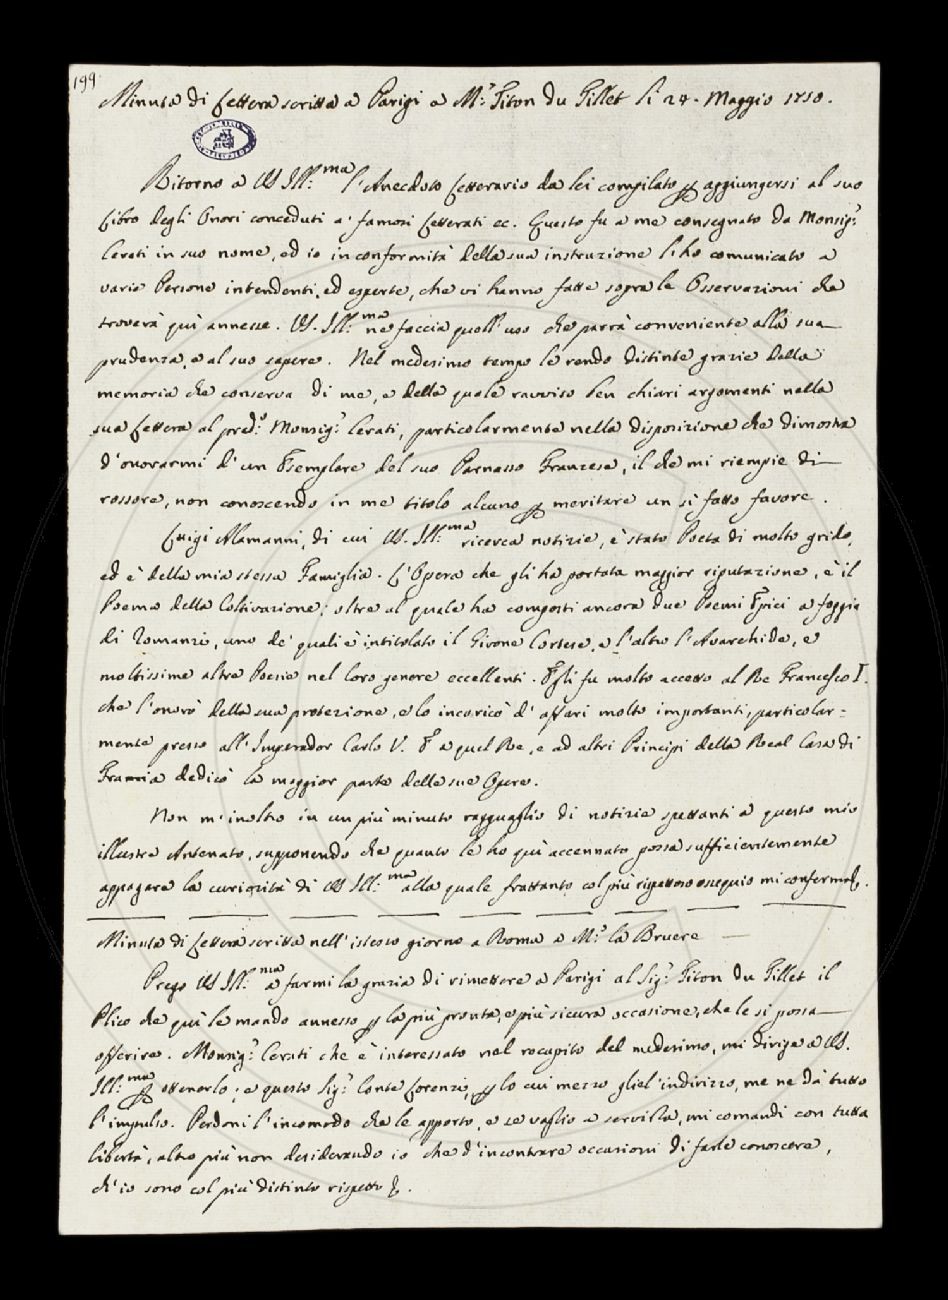 199.
Minuta di Lettera scritta a Parigi a M.r Titon du Tillet li 24. Maggio 1750.
Ritorno a VS Ill:ma l'Aneddoto Letterario da lei compilato per aggiungersi al suo
Libro degli Onori conceduti a' famosi Letterati ec. Questo fu a me consegnato da Monsig.r
Cerati in suo nome, ed io in conformità della sua instruzione l'ho comunicato a
varie Persone intendenti, ed esperte, che vi hanno fatte sopra le Osservazioni che
troverà quì annesse. VS. Ill:ma ne faccia quell'uso che parrà conveniente alla sua
prudenza, e al suo sapere. Nel medesimo tempo le rendo distinte grazie della
memoria che conserva di me, e della quale ravviso ben chiari argomenti nella
sua Lettera al pred.o Monsig.r Cerati, particolarmente nella disposizione che dimostra
d'onorarmi d'un Esemplare del suo Parnasso Franzese, il che mi riempie di
rossore, non conoscendo in me titolo alcuno per meritare un sì fatto favore.
Luigi Alamanni, di cui VS. Ill:ma ricerca notizie, è stato Poeta di molto grido,
ed è della mia stessa Famiglia. L'Opera che gli ha portata maggior riputazione, è il
Poema della Coltivazione; oltre al quale ha composti ancora due Poemi Epici a foggia
di Romanzi, uno de' quali è intitolato il Girone Cortese, e l'altro l'Avarchide, e
moltissime altre Poesie nel loro genere eccellenti. Egli fu molto accetto al Re Francesco I.
che l'onorò della sua protezione, e lo incaricò d'affari molto importanti, particolar=
mente presso all'Imperador Carlo V. E a quel Re, e ad altri Principi della Real Casa di
Francia dedicò la maggior parte delle sue Opere.
Non m'inoltro in un più minuto ragguaglio di notizie spettanti a questo mio
illustre Antenato, supponendo che quanto le ho quì accennato possa sufficientemente
appagare la curiosità di VS Ill:ma alla quale frattanto col più rispettoso ossequio mi confermo &.
Minuta di Lettera scritta nell'istesso giorno a Roma a M.r la Bruere
Prego VS Ill:ma a farmi la grazia di rimettere a Parigi al Sig.r Titon du Tillet il
Plico che quì le mando annesso per la più pronta, e più sicura occasione, che le si possa
offerire. Monsig.r Cerati che è interessato nel recapito del medesimo, mi dirige a VS.
Ill:ma per ottenerlo; e questo Sig.r Conte Lorenzi, per lo cui mezzo gliel'indirizzo, me ne dà tutto
l'impulso. Perdoni l'incomodo che le apporto, e se vaglio a servirla, mi comandi con tutta
libertà, altro più non desiderando io che d'incontrare occasioni di farle conoscere,
ch'io sono col più distinto rispetto &.